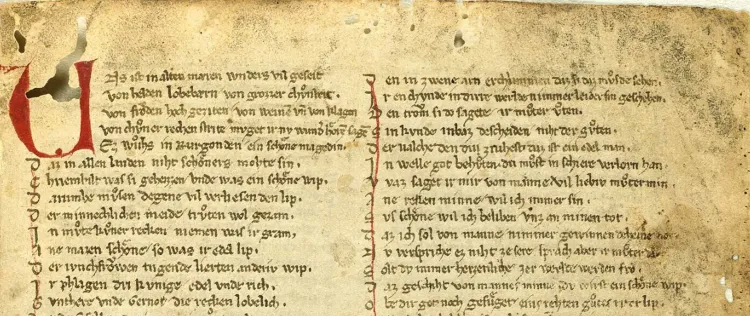 UNs ist in alten maren wnders vil geseit
von heleden lobebern von grozer chvnheit.
von froden hochgeziten von weinen vn von klagen
von chvner rechen strite mvget ir nv wund horen sage
Ez whs in Burgonden ein schone magedin.
Daz in allen landen niht schoners mohte sin.
Chriemhilt was si geheizen vnde was ein schone wip.
darumbe mvsen degene vil verliesen den lip.
Der minnechlichen meide trvten wol gezam.
in mvte kvner recken niemen was ir gram,
ane mazen schone so was ir edel lip.
der ivnchfrowen tugende zierten anderiv wip.
Ir phlagen dri kvnige edel vnde rich,
Gvnthere vnde Gernot die recken lobelich.
den in zwene arn erchrummen daz si daz mvsde sehen.
ir en chvnde in dirre werlde nimmer leider sin geschehen.
Den trom si do sagete ir mvter vten.
sin kvnde in baz bescheiden niht der gvten.
der valche den dv zivhest daz ist ein edel man.
in welle got behvten dv mvst in schiere verlorn han.
Waz saget ir mir von manne vil liebiv mvter min
ane recken minne wil ich immer sin.
svs schone wil ich beliben vnz an minen tot.
daz ich sol von manne nimmer gewinnen deheine not.
Nv versprich ez niht ze sere sprach aber ir mvter do.
solt dv immer hercenliche zer werlde werden fro.
daz geschiht von mannes minne dv wirst ein schone wip.
obe dir got noch gefvget eins rehten gvtes ritter lip.